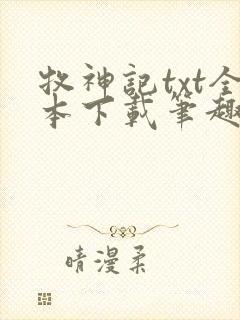 牧神記txt全
本下載筆趣
晴漫柔